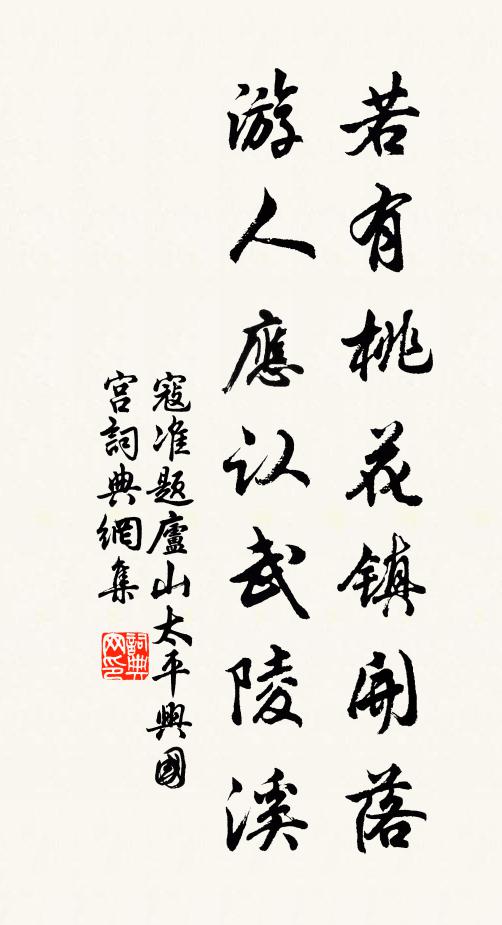 若有桃花镇開落
游人應认武陵溪
寇准题廬山太平興國
宫詞典網集
詞典
网印